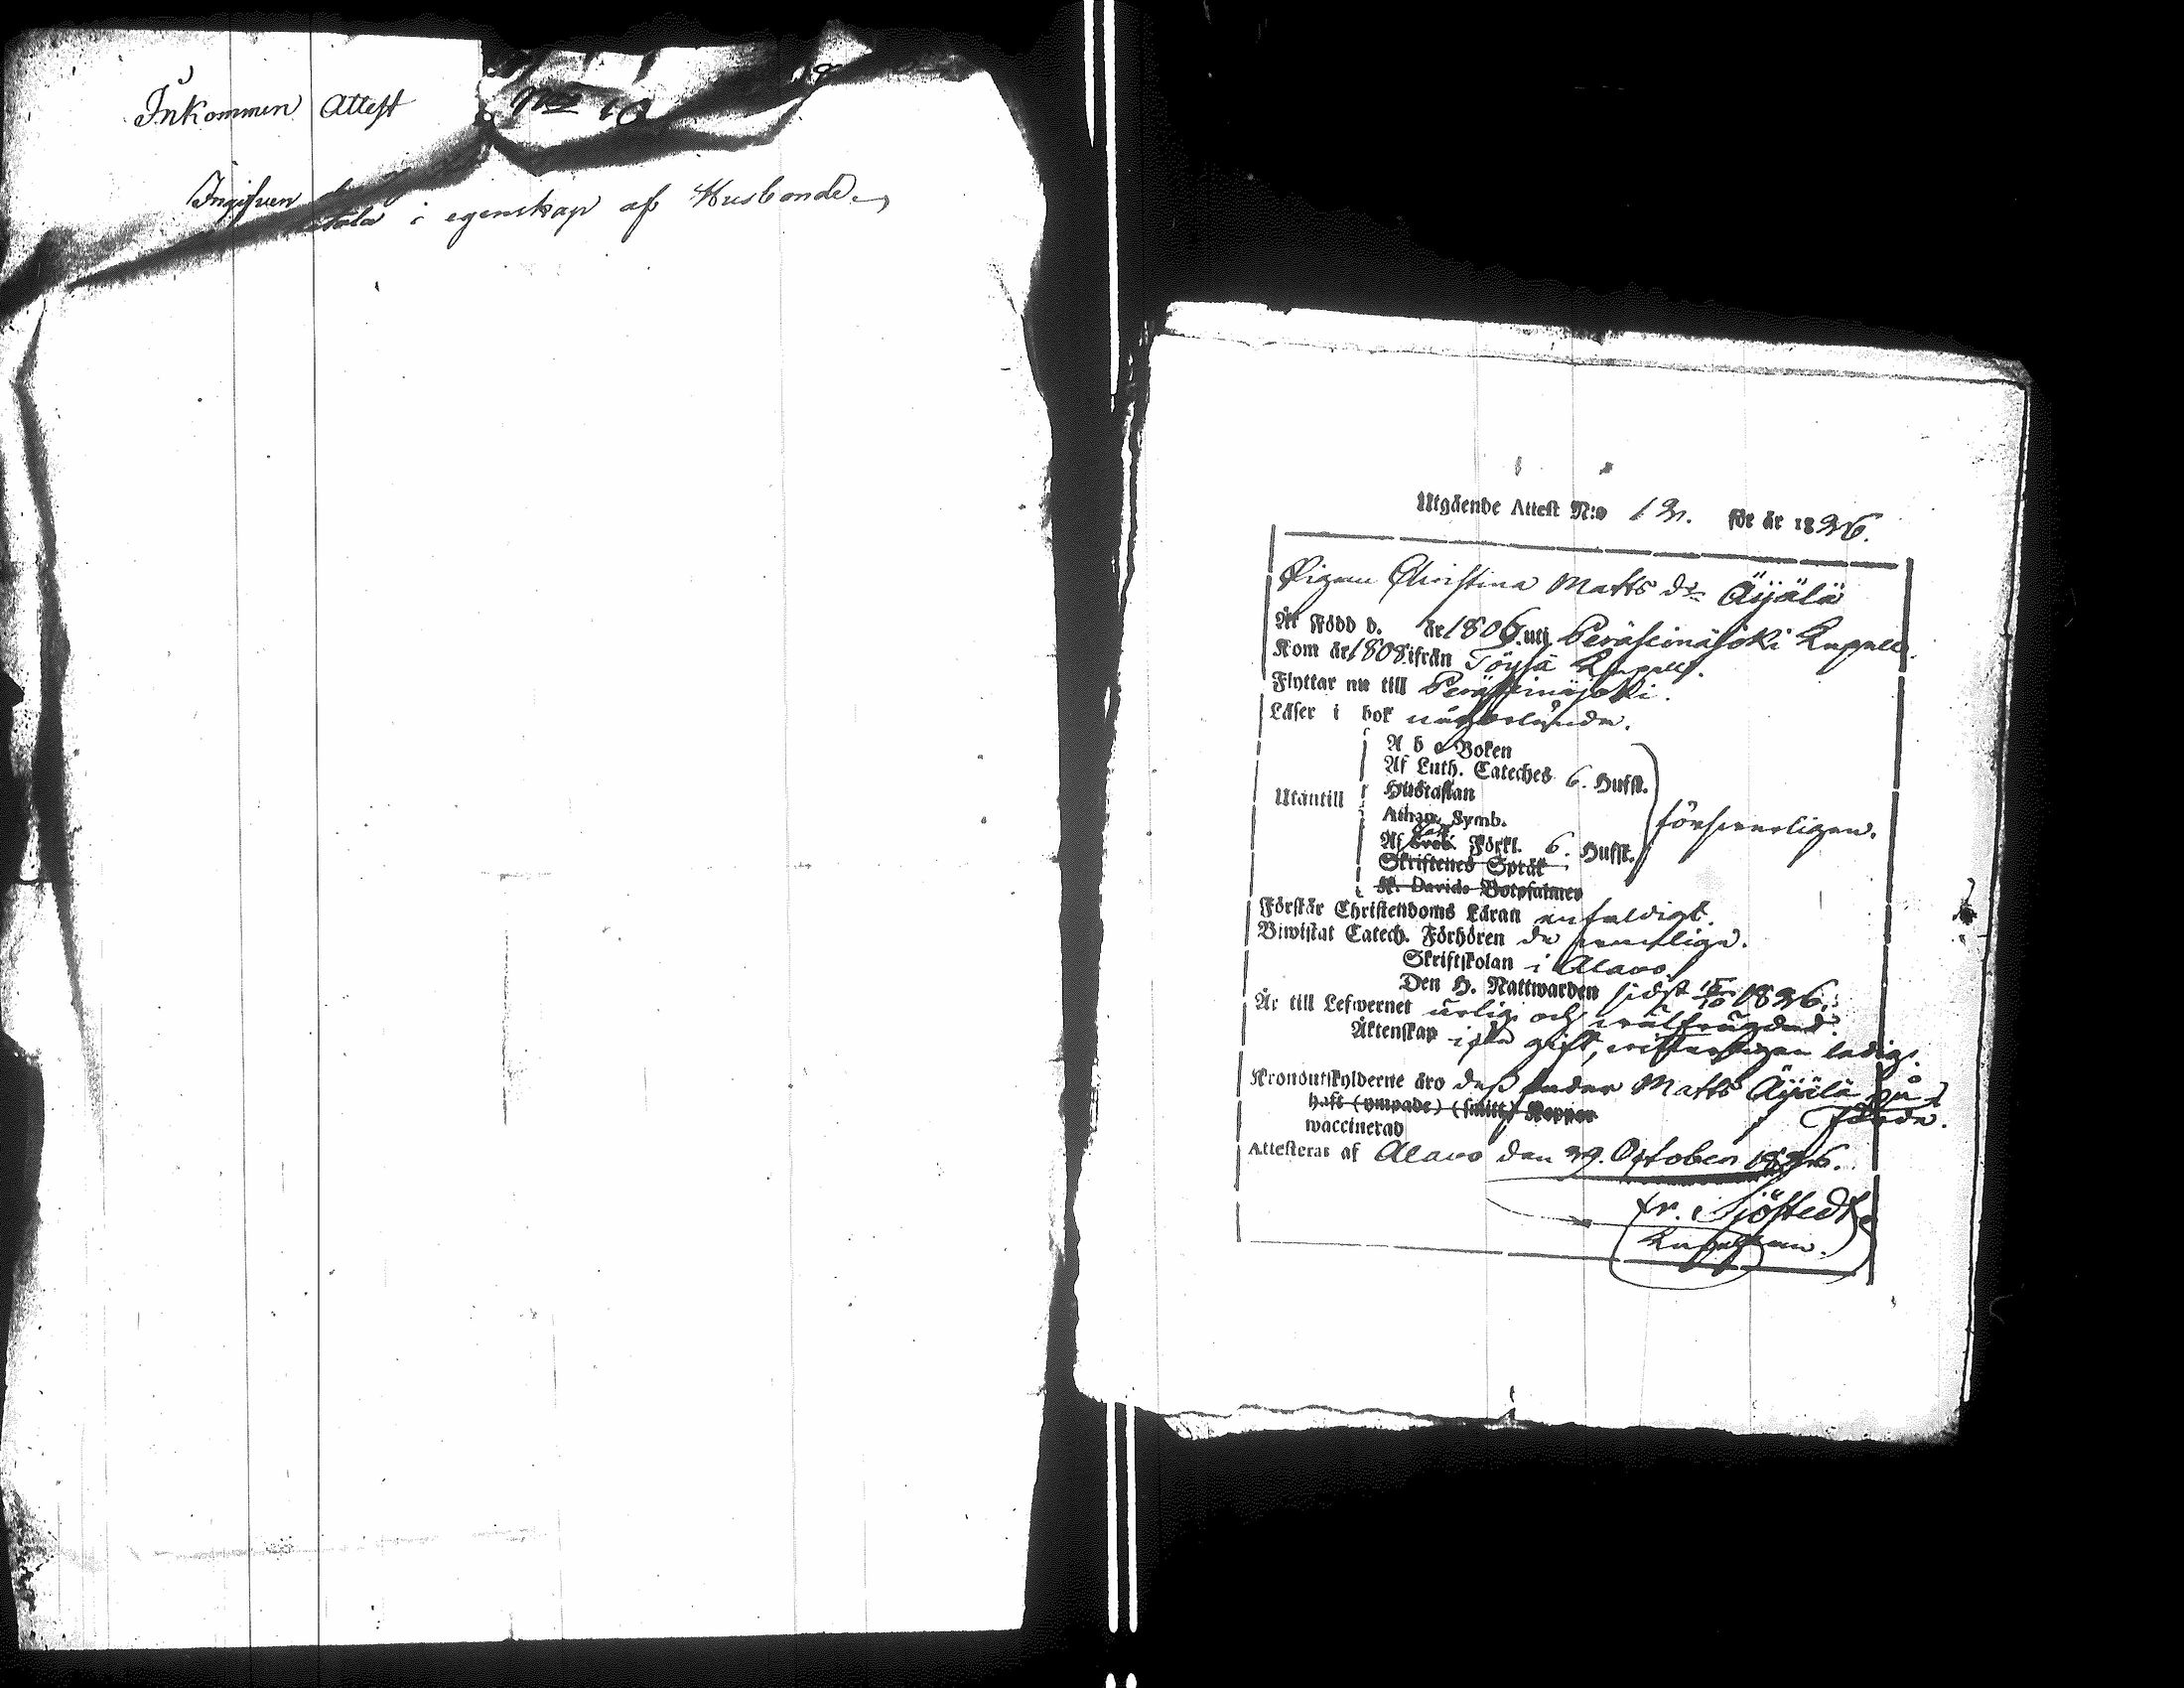 Inkommen Attest No 10
Ingifven
i egenskap af Husbonde.
Utgående Attest N:o 12. för år 1826.
Pigan Christina Matts dr Äijälä
Är Född d. år 1806. uti Peräseinäjoki Kapell.
Kom år 1808 ifrån Töysä Kapell.
Flyttar nu till Peräseinäjoki.
Läser i bok någorlunda.
Utantill
A b c Boken
Af Luth. Cateches 6. Hufst.
Hustaflan
Athan. Symb.
försvarligen.
Af Förkl. 6. Hufst.
Skriftenes Språk
K. Davids Botpsalmer
Förstår Christendoms Läran enfaldigt.
Biwistat Catech. Förhören de vanliga.
Skriftskolan i Alavo.
Den H. Nattwarden sidst 15/10 1826.
Är till Lefwernet ärlig och välfrägdad.
Äktenskap icke gift, ledig.
Kronoutskylderne äro dess fader Matts Äijälä på-
förda.
haft (ympade) (smitt) Koppor
waccinerad
Attesteras af Alavo den 29. October 1826.
Fr. Sjöstedt
Kapellan.